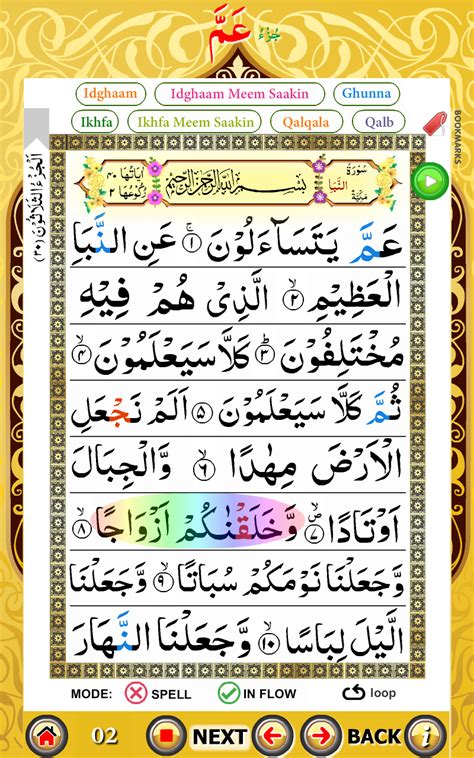 جُزْءُ عَمَّ
Idghaam Idghaam Meem Saakin Ghunna
Ikhfa Ikhfa Meem Saakin Qalqala Qalb
BOOKMARKS
اَلْجُزْءُ الثَّلَاثُوْنَ (٣٠)
سُوْرَةُ النَّبَاِ مَكِّيَّةٌ
بِسْمِ اللّٰهِ الرَّحْمٰنِ الرَّحِيْمِ
اٰيَاتُهَا ٤٠ رُكُوْعُهَا ٢
عَمَّ يَتَسَآءَلُوْنَ ۚ ١ عَنِ النَّبَاِ
الْعَظِيْمِ ۙ ٢ الَّذِىْ هُمْ فِيْهِ
مُخْتَلِفُوْنَ ؕ ٣ كَلَّا سَيَعْلَمُوْنَ ۙ ٤
ثُمَّ كَلَّا سَيَعْلَمُوْنَ ٥ اَلَمْ نَجْعَلِ
الْاَرْضَ مِهٰدًا ۙ ٦ وَّالْجِبَالَ
اَوْتَادًا ۪ۙ ٧ وَّخَلَقْنٰكُمْ اَزْوَاجًا ۙ ٨
وَّجَعَلْنَا نَوْمَكُمْ سُبَاتًا ۙ ٩ وَّجَعَلْنَا
الَّيْلَ لِبَاسًا ۙ ١٠ وَّجَعَلْنَا النَّهَارَ
MODE: SPELL IN FLOW loop
02 NEXT BACK i